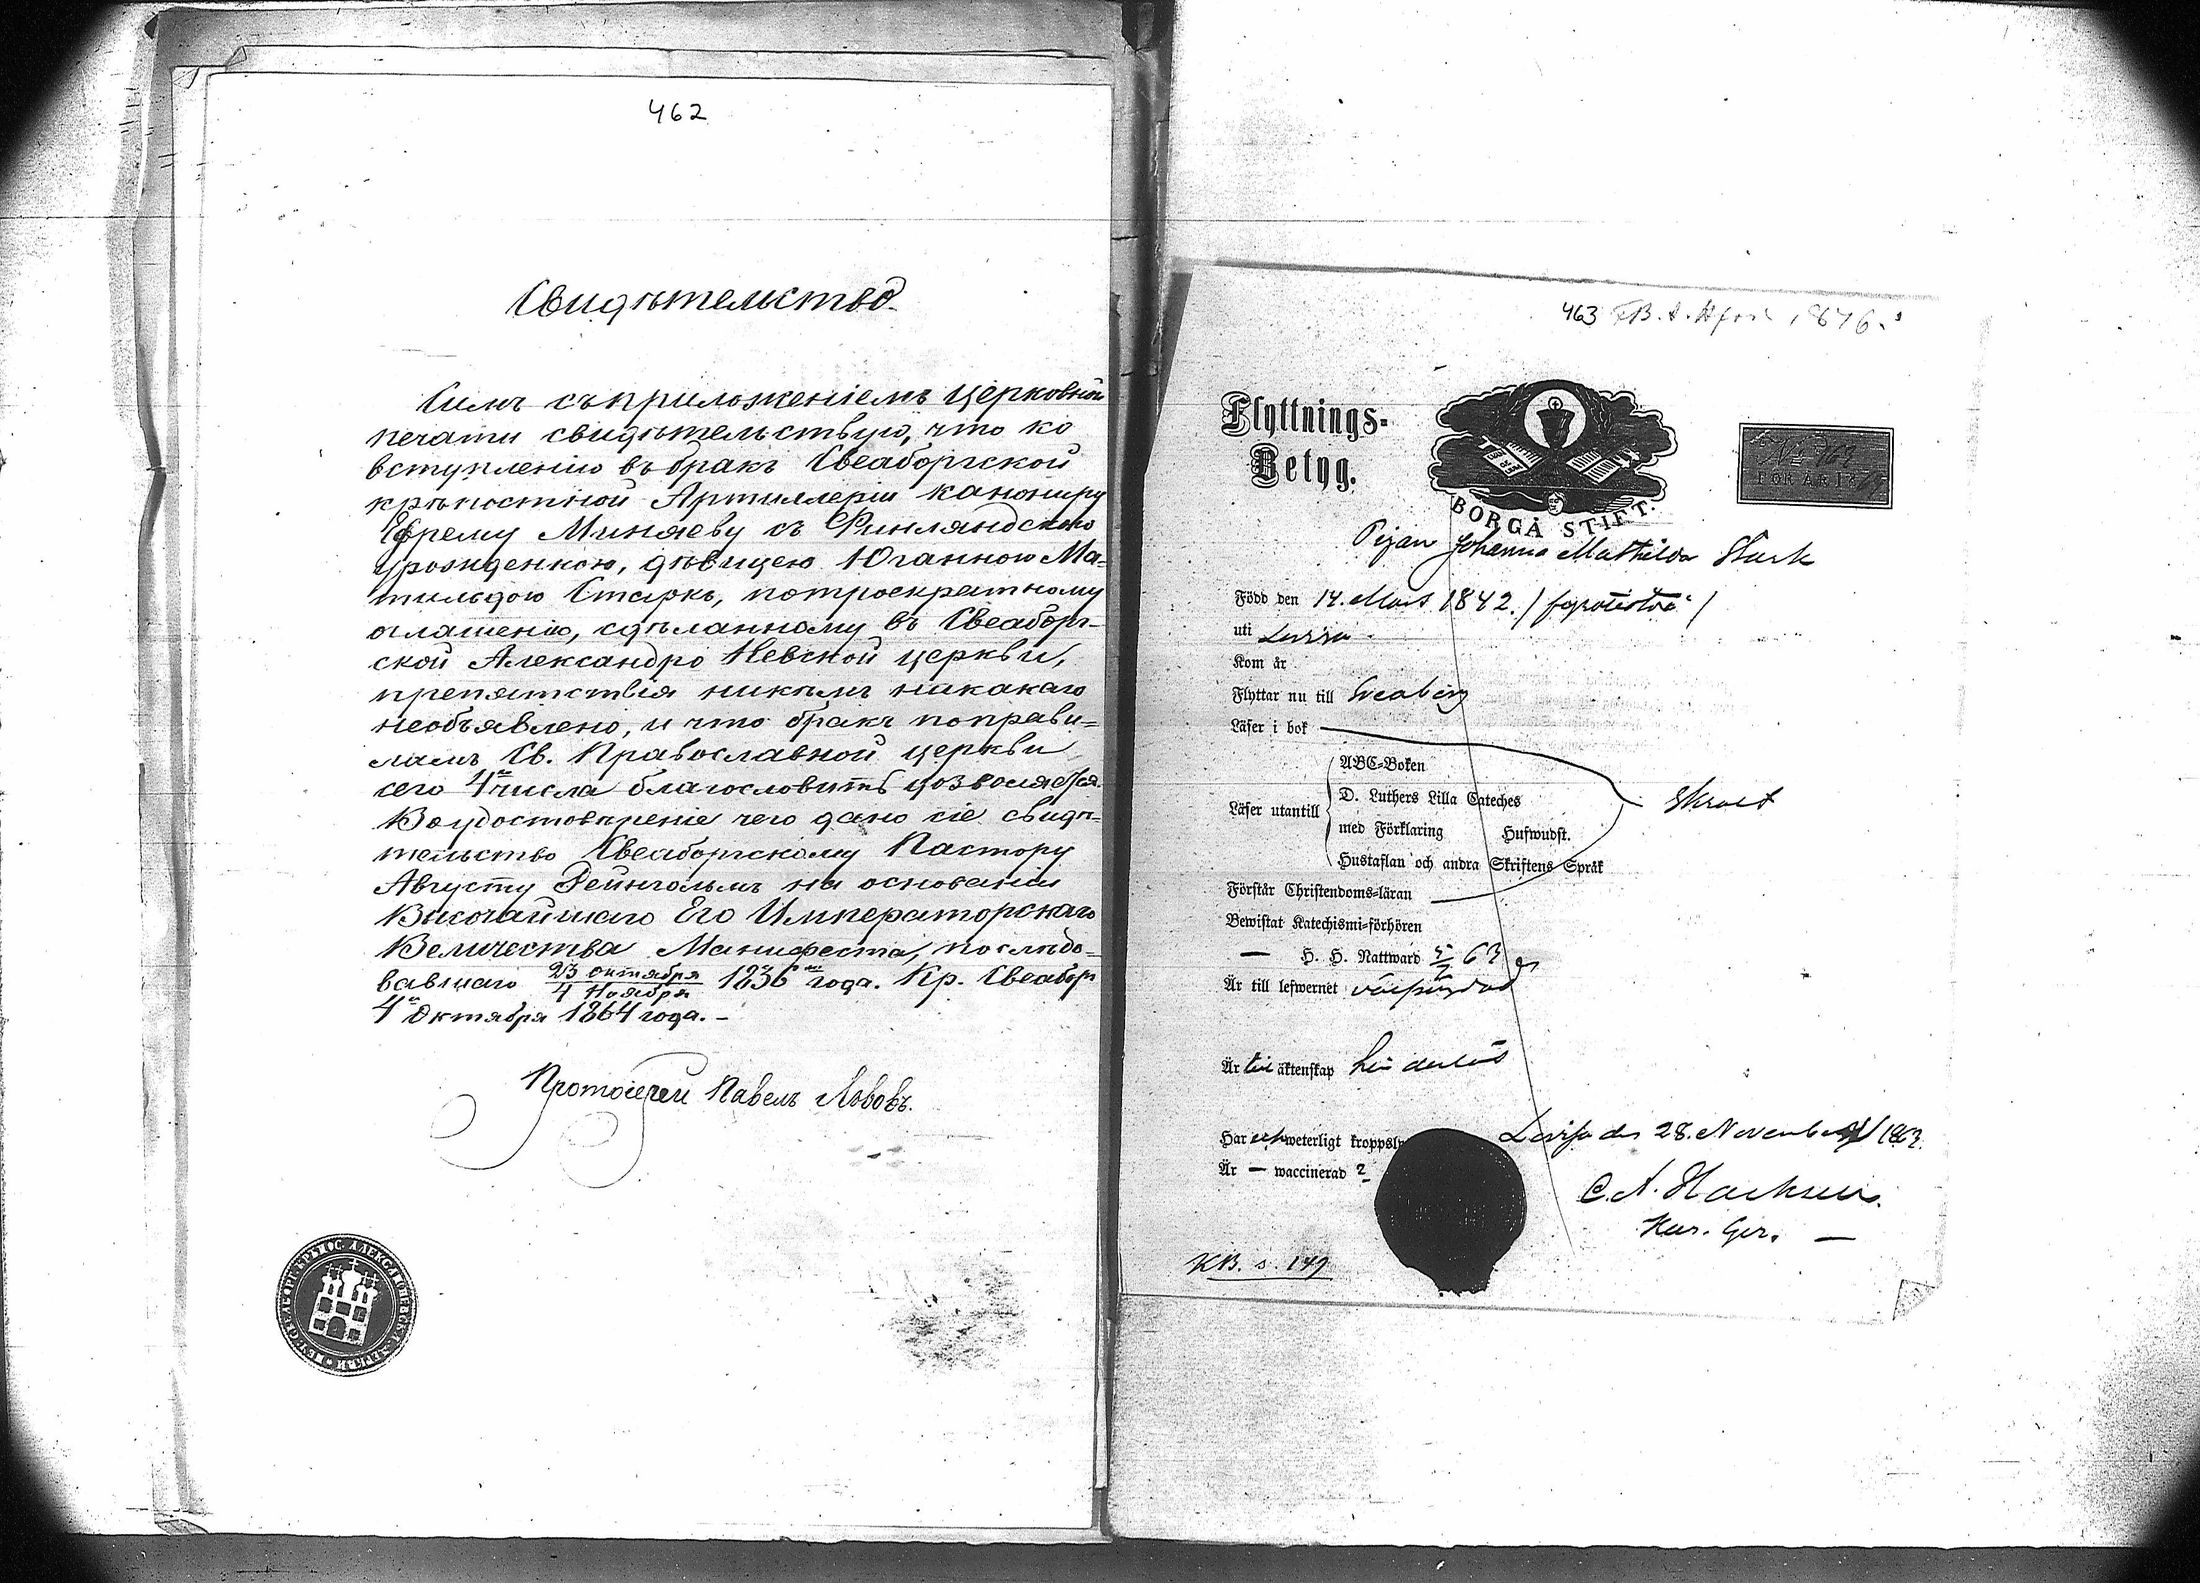 462
Свидѣтельство.
Симъ съ приложеніемъ церковной
печати свидѣтельствую, что ко
вступленію въ бракъ Свеаборгской
крѣпостной Артиллеріи канониру
Ефрему Миняеву съ Финляндскою
урожденкою, дѣвицею Юганною Ма=
тильдою Старкъ, потроекратному
оглашенію, сдѣланному въ Свеаборг-
ской Александро Невской церкви,
препятствія никѣмъ никакаго
необъявлено, и что бракъ поправи=
ламъ Св. Православной церкви
сего 4го числа благословить
Воудостовѣреніе чего дано сіе свидѣ-
тельство Свеаборгскому Пастору
Августу на основаніи
Высочайшаго Его Императорскаго
Величества Манифеста, послѣдо-
вавшаго 23 октября / 4 Ноября 1836го года. Кр. Свеаборг
4го Октября 1864 года. –
Протоіерей Павелъ Львовъ.
463
Flyttnings=
Betyg.
BORGÅ STIFT.
No 463
FÖR ÅR 18
Pigan Johanna Mathilda Stark
Född den 14. Mars 1842.
uti Lovisa
Kom år
Flyttar nu till Sveaborg
Läser i bok
ABC=Boken
D. Luthers Lilla Cateches
Läser utantill
med Förklaring Hufwudst.
Hustaflan och andra Skriftens Språk
Förstår Christendoms=läran
Bewistat Katechismi=förhören
— H. H. Nattward 63
Är till lefwernet
Är till äktenskap hinderlös
Har weterligt kroppsly
Är — waccinerad ?
Lovisa den 28. November 1863.
C. A.
KB. s. 149